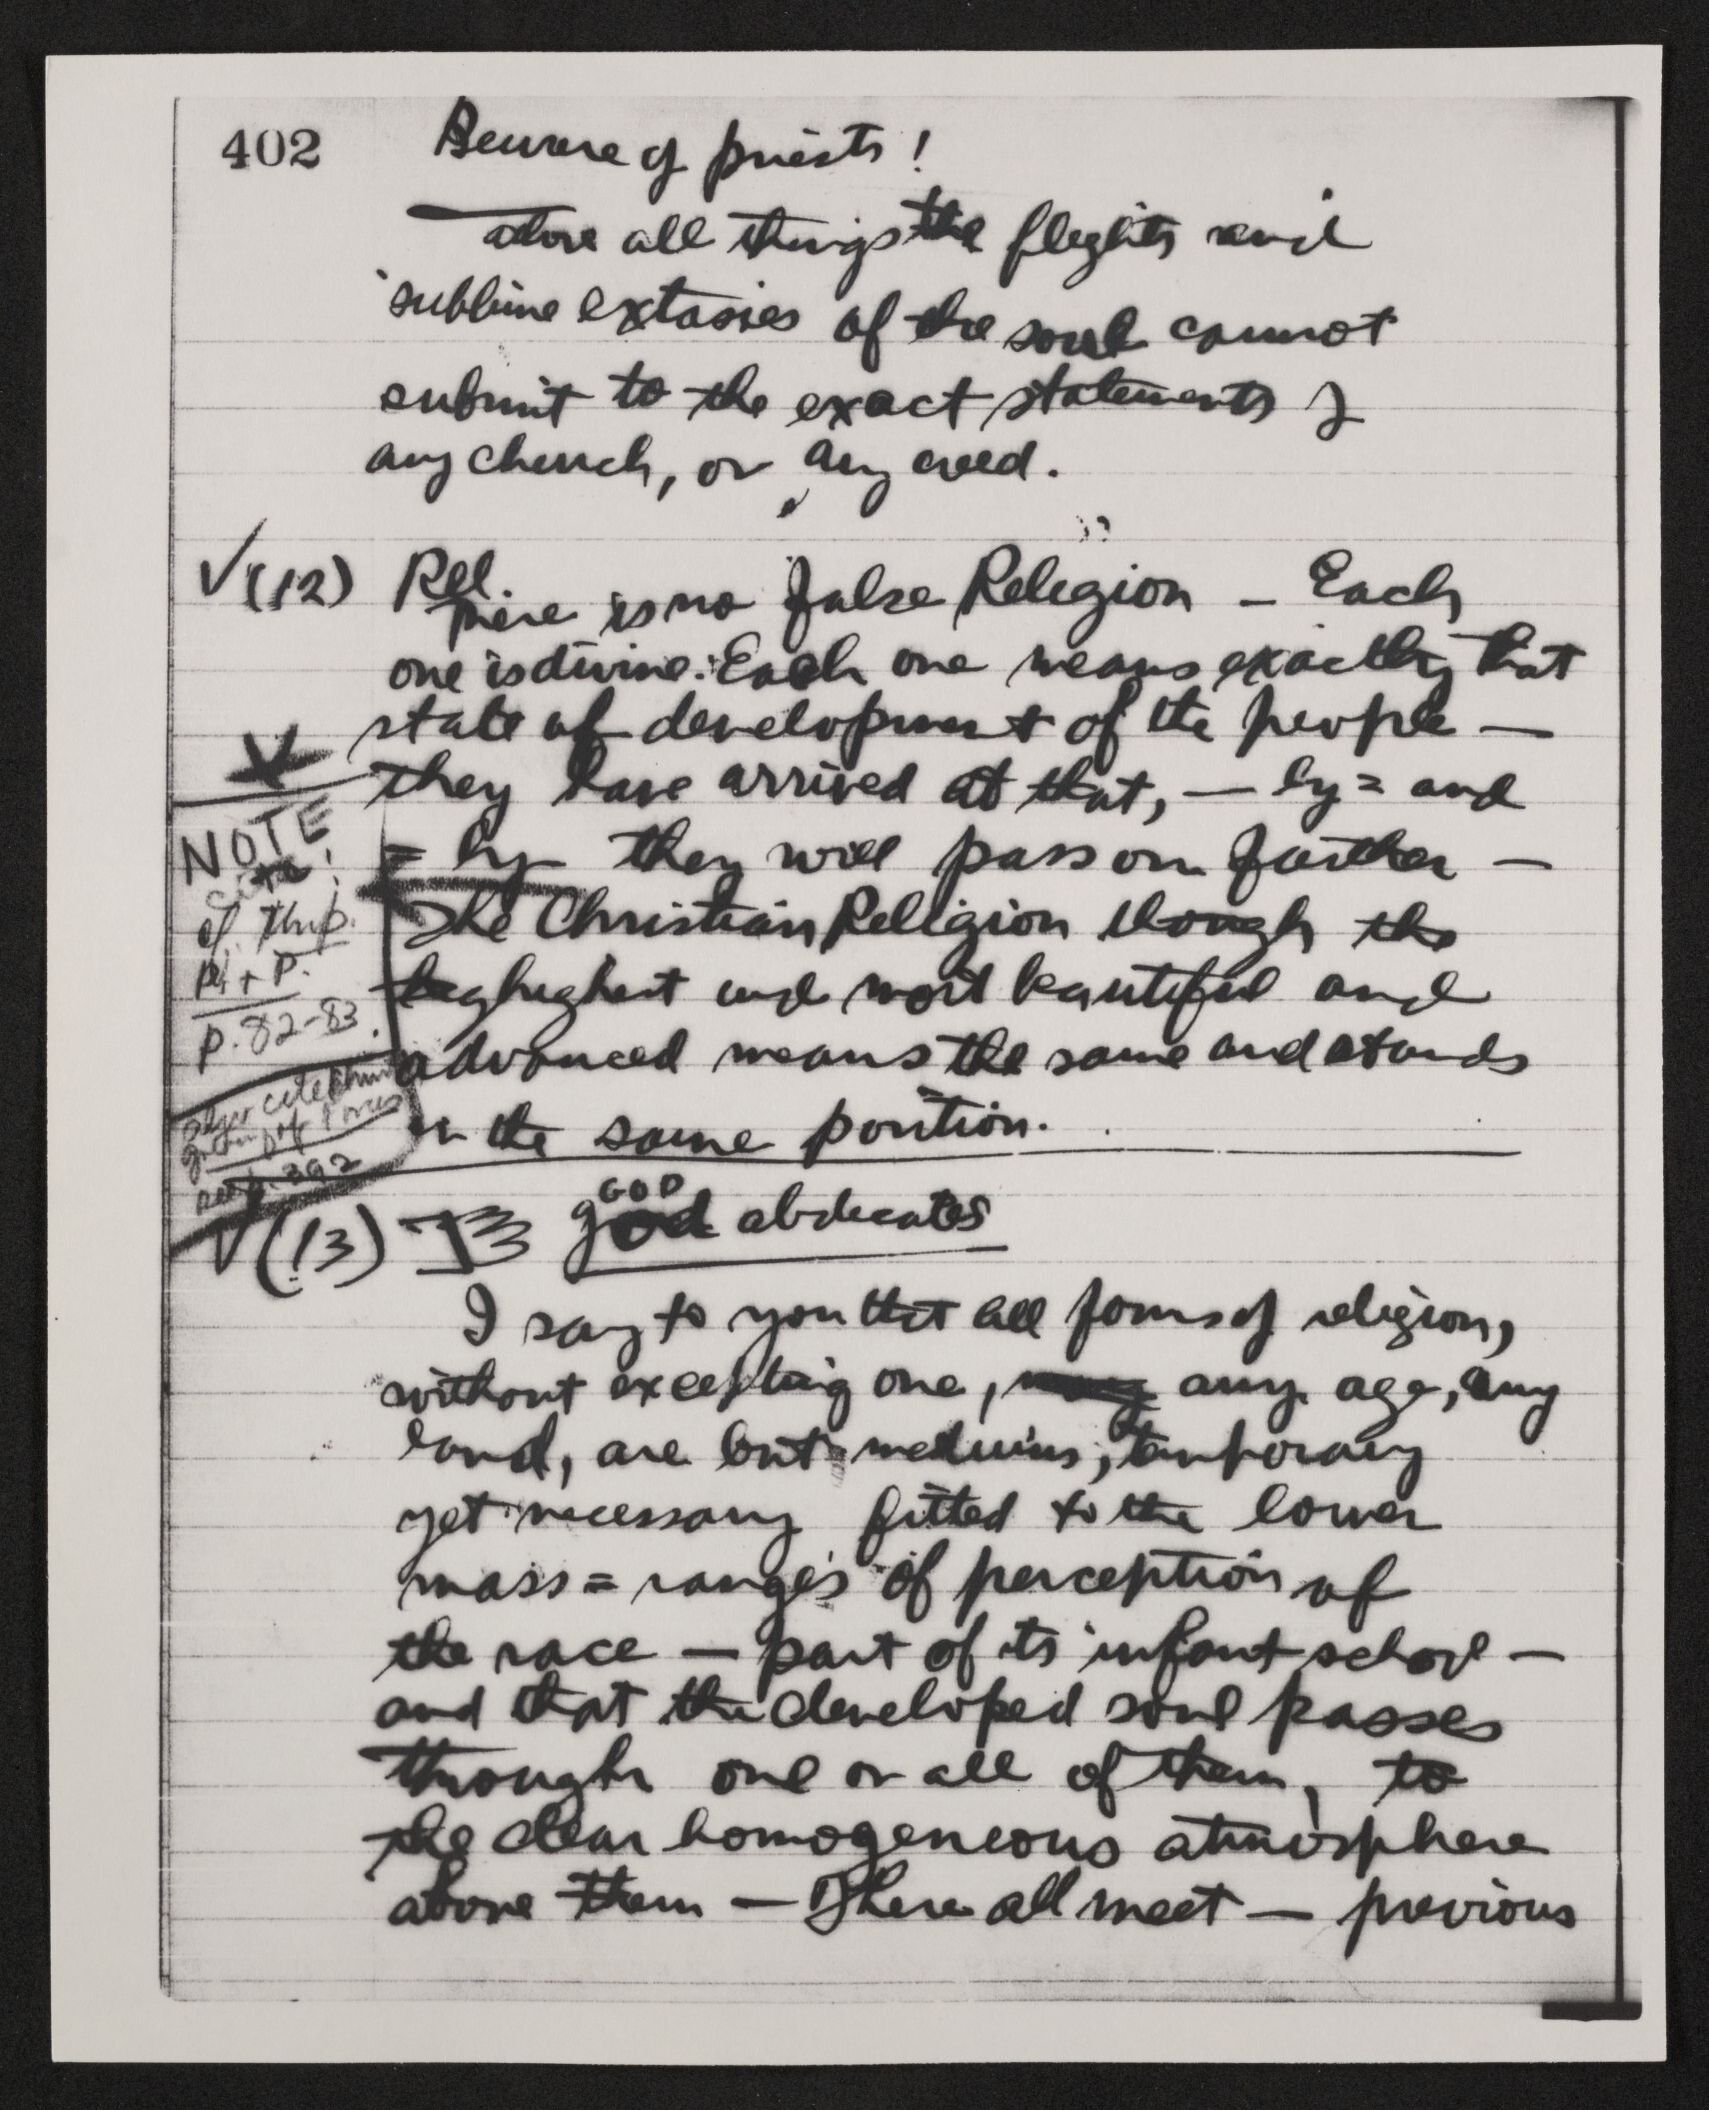 402
Beware of priests!
above all things the flights and
sublime extasies of the soul cannot
submit to the exact statements of
any church, or any creed.
✓(12) Rel.
There is no false Religion — Each
one is divine. Each one means exactly that
state of development of the people —
they have arrived at that, — by = and
= by they will pass on further —
NOTE
cite!
of this p.
p. 82-83.
The Christian Religion though the
highest and most beautiful and
advanced means the same and stands
in the same position.
also cite
p. 392
✓(13) God GOD abdicates
I say to you that all forms of religion,
without excepting one, any age, any
land, are but mediums, temporary
yet necessary fitted to the lower
mass = ranges of perception of
the race — part of its infant school —
and that the developed soul passes
through one or all of them, to
the clear homogeneous atmosphere
above them — There all meet — previous